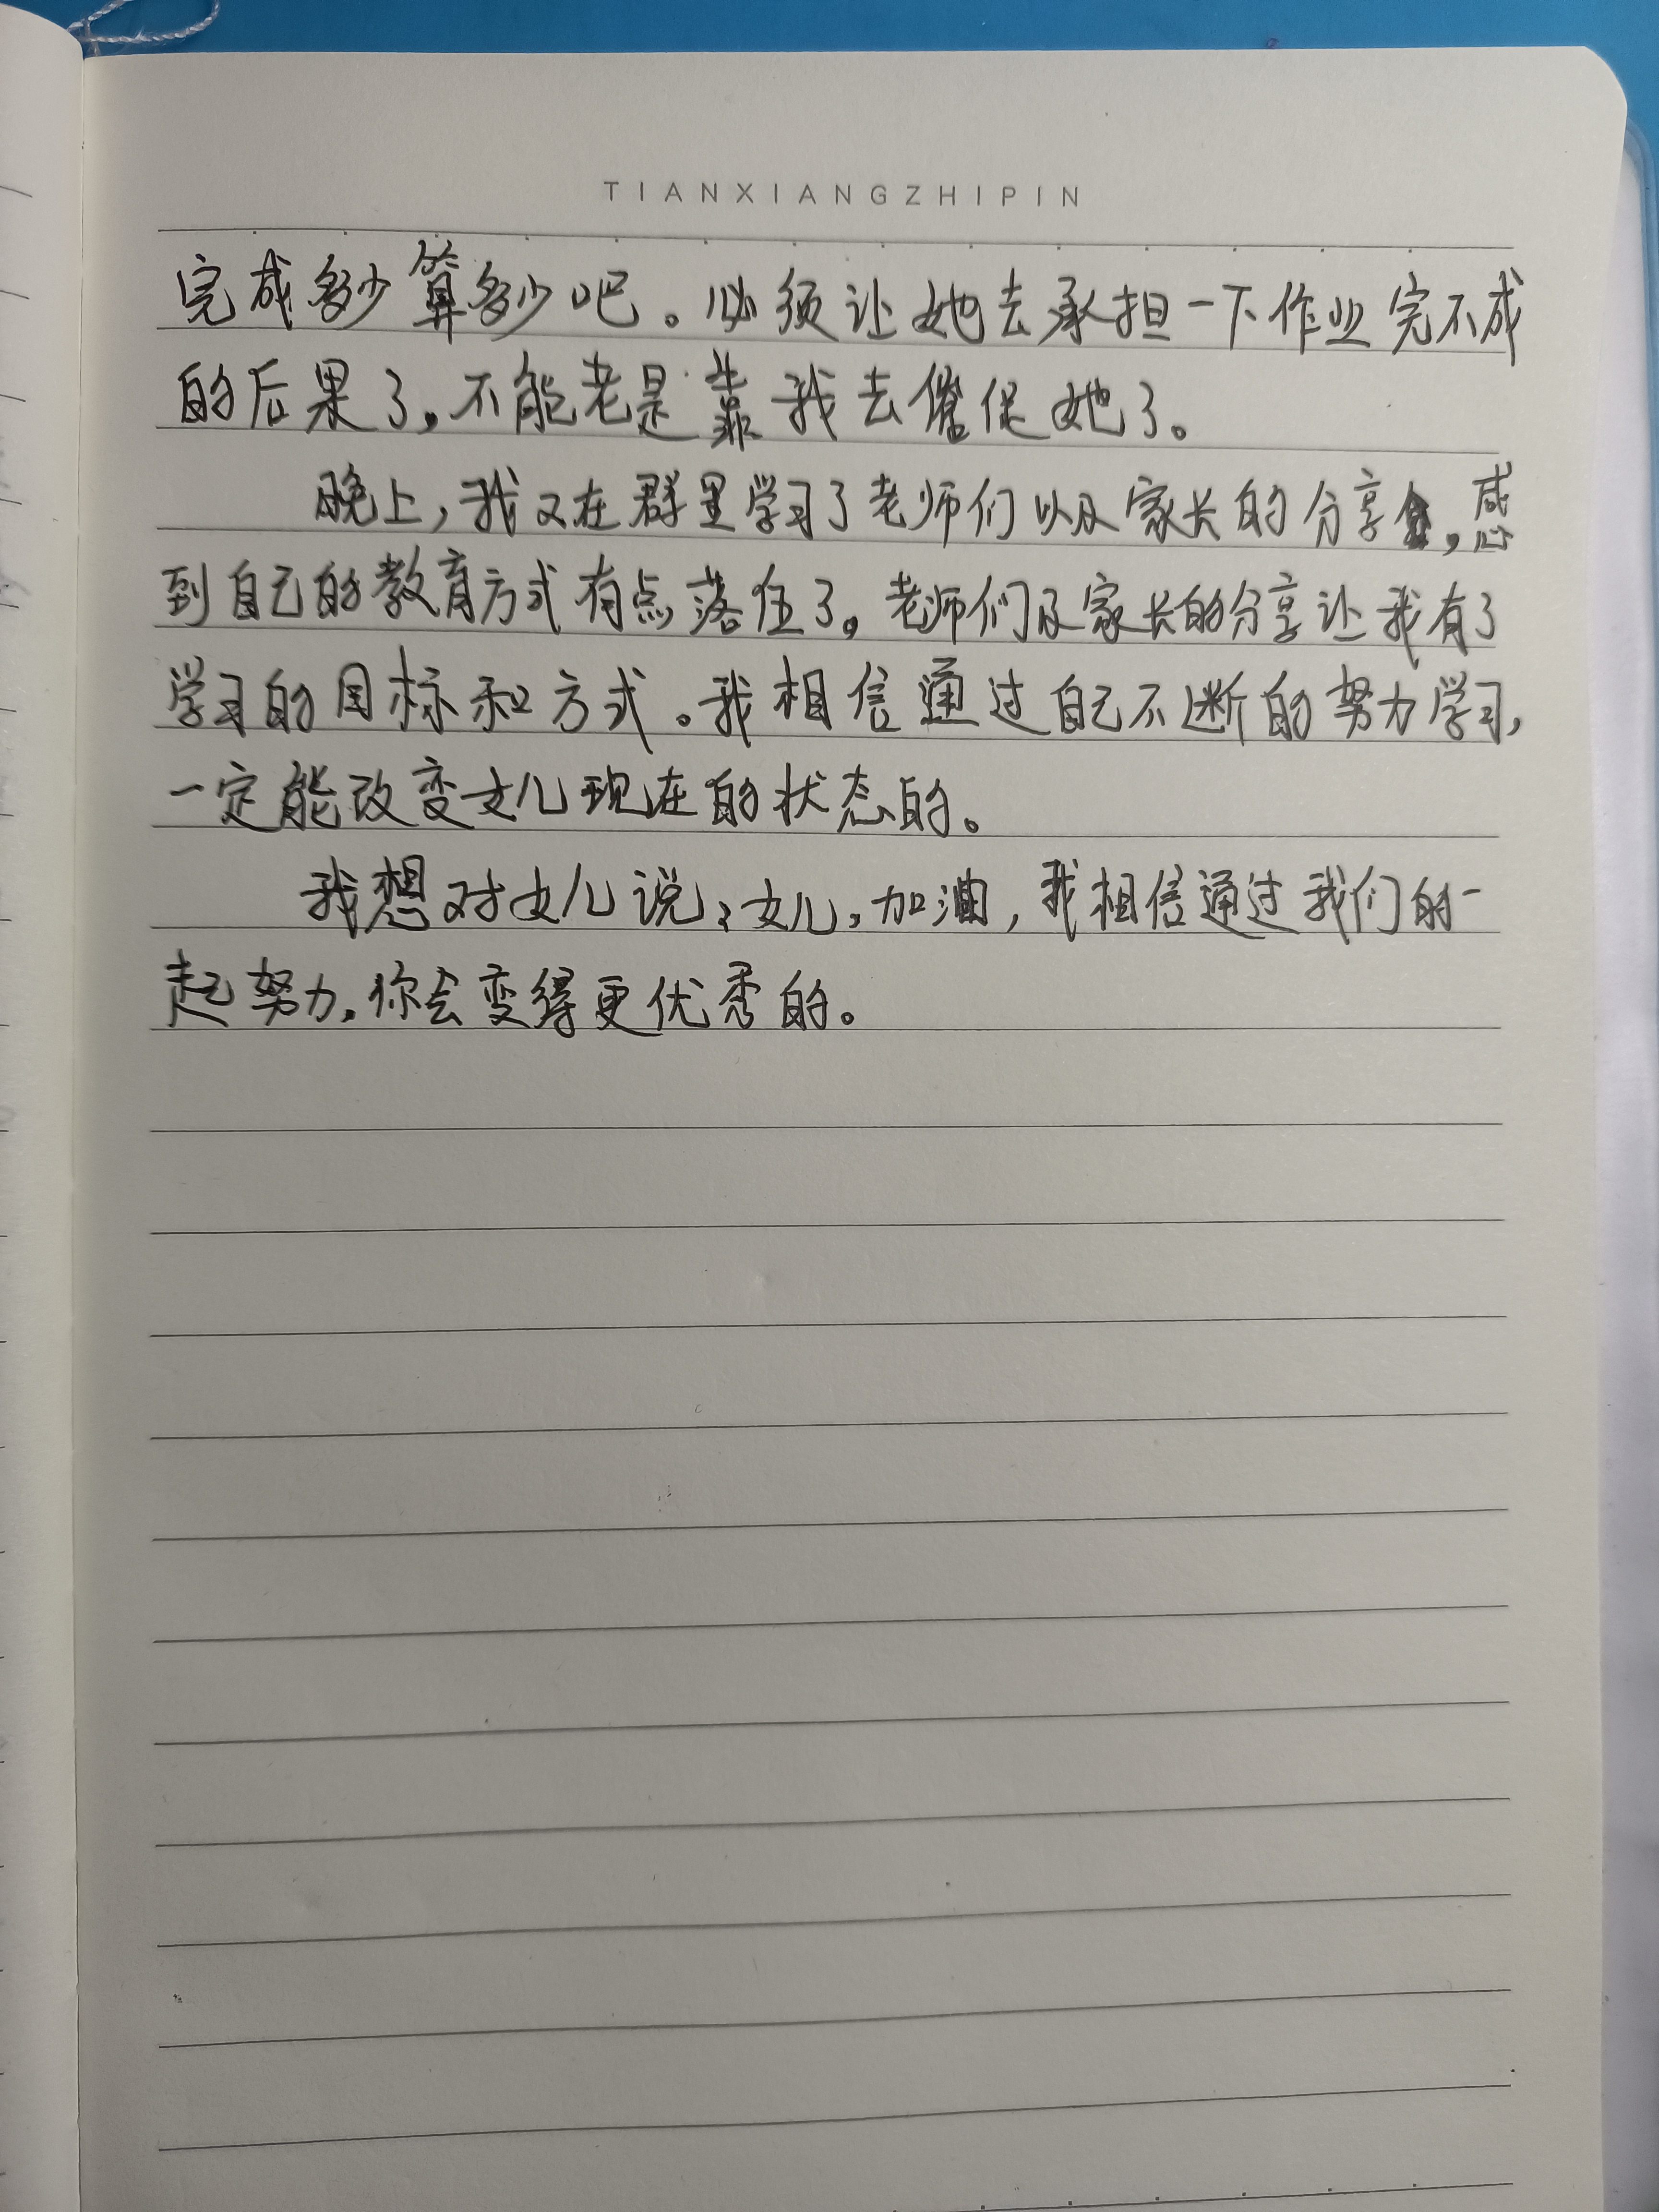 TIANXIANGZHIPIN
完成多少算多少吧。必须让她去承担一下作业完不成
的后果了。不能老是靠我去催促她了。
晚上,我又在群里学习了老师们以及家长的分享,感
到自己的教育方式有点落伍了。老师们及家长的分享让我有了
学习的目标和方式。我相信通过自己不断的努力学习,
一定能改变女儿现在的状态的。
我想对女儿说:女儿,加油,我相信通过我们的一
起努力,你会变得更优秀的。